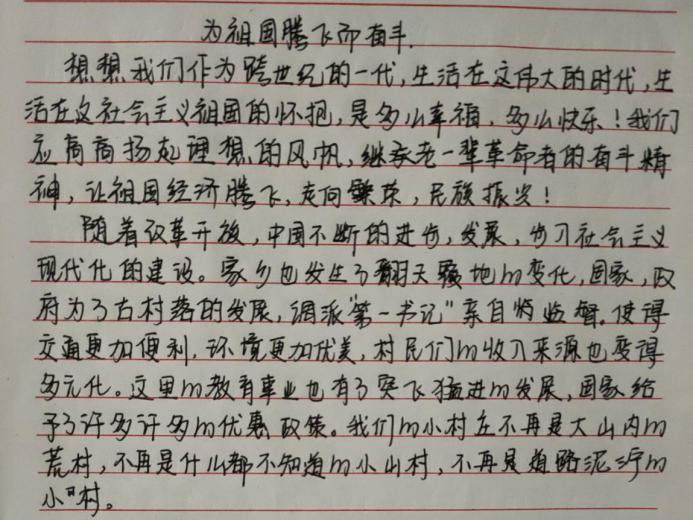 为祖国腾飞而奋斗.
想想我们作为跨世纪的一代,生活在这伟大的时代,生
活在这社会主义祖国的怀抱,是多么幸福,多么快乐!我们
应高高扬起理想的风帆,继承老一辈革命者的奋斗精
神,让祖国经济腾飞,走向繁荣,民族振兴!
随着改革开放,中国不断的进步,发展,步入社会主义
现代化的建设。家乡也发生了翻天覆地的变化,国家,政
府为了古村落的发展,调派“第一书记”亲自的监督.使得
交通更加便利,环境更加优美,村民们的收入来源也变得
多元化。这里的教育事业也有了突飞猛进的发展,国家给
予了许多许多的优惠政策。我们的小村庄不再是大山内的
荒村,不再是什么都不知道的小山村,不再是道路泥泞的
小村。